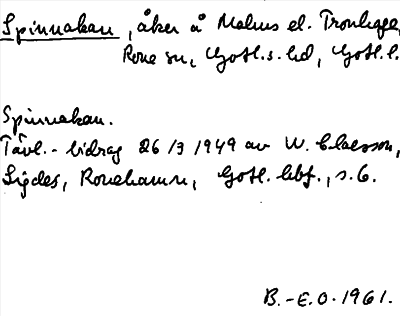 Spinnakan, åker å Malms el. Tronhage,
Rone sn, Gotl. s. hd, Gotl. l.
Spinnakan.
Tävl.-bidrag 26/3 1949 av W. Claesson,
Sigdes, Ronehamn, Gotl. lbf., s. 6.
B.-E.O. 1961.